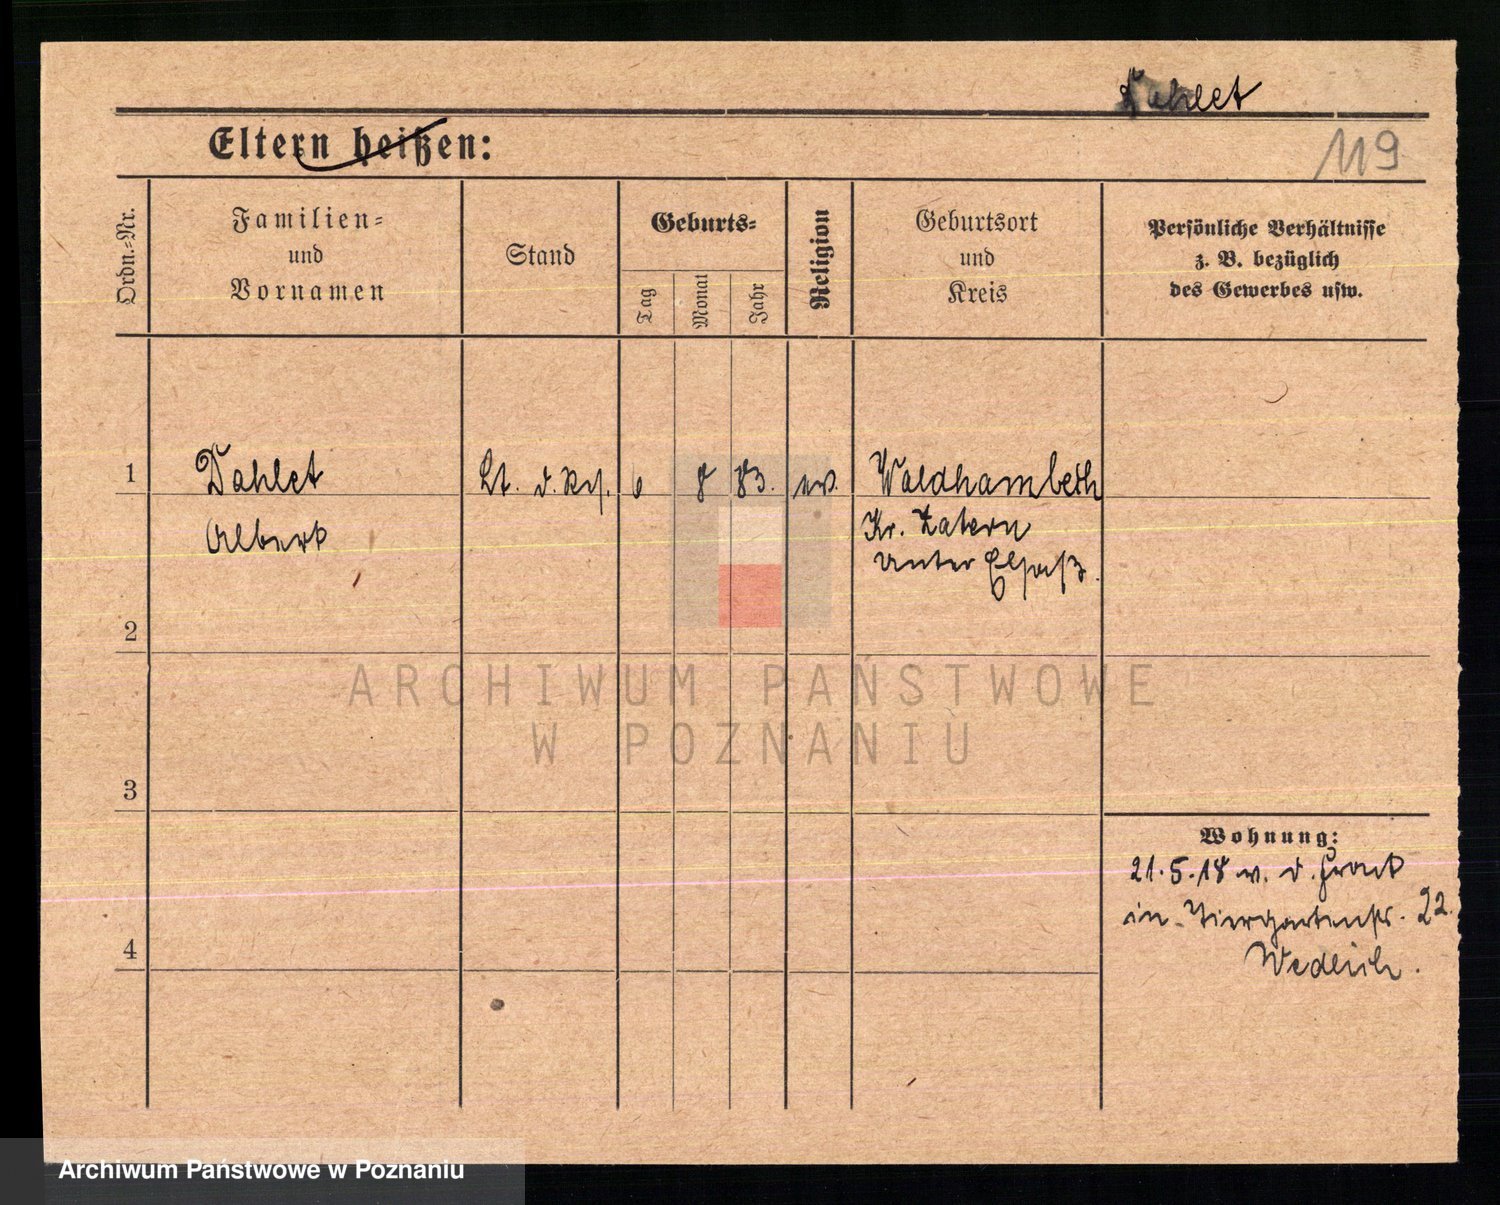 Dahlet
Eltern heißen:
119
Ordn.=Nr.
Familien=
und
Vornamen
Stand
Geburts=
Tag
Monat
Jahr
Religion
Geburtsort
und
Kreis
Persönliche Verhältnisse
z. B. bezüglich
des Gewerbes usw.
1
Dahlet
Albert
Lt. d. Res.
6
8
83.
ev.
Waldhambach
Kr. Zabern
Unter Elsaß.
2
3
4
Wohnung:
21.5.18 v. d. Front
in Tiergartenstr. 22.
ARCHIWUM PAŃSTWOWE
W POZNANIU
Archiwum Państwowe w Poznaniu